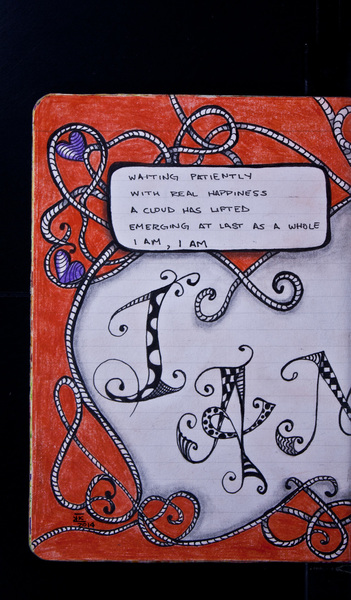 WAITING PATIENTLY
WITH REAL HAPPINESS
A CLOUD HAS LIFTED
EMERGING AT LAST AS A WHOLE
I AM, I AM
I
AM